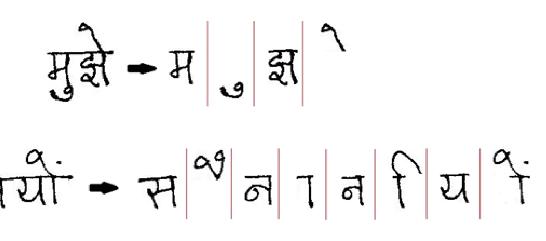 मुझे → म ु झ े
यों → स ै न ा न ि य ों